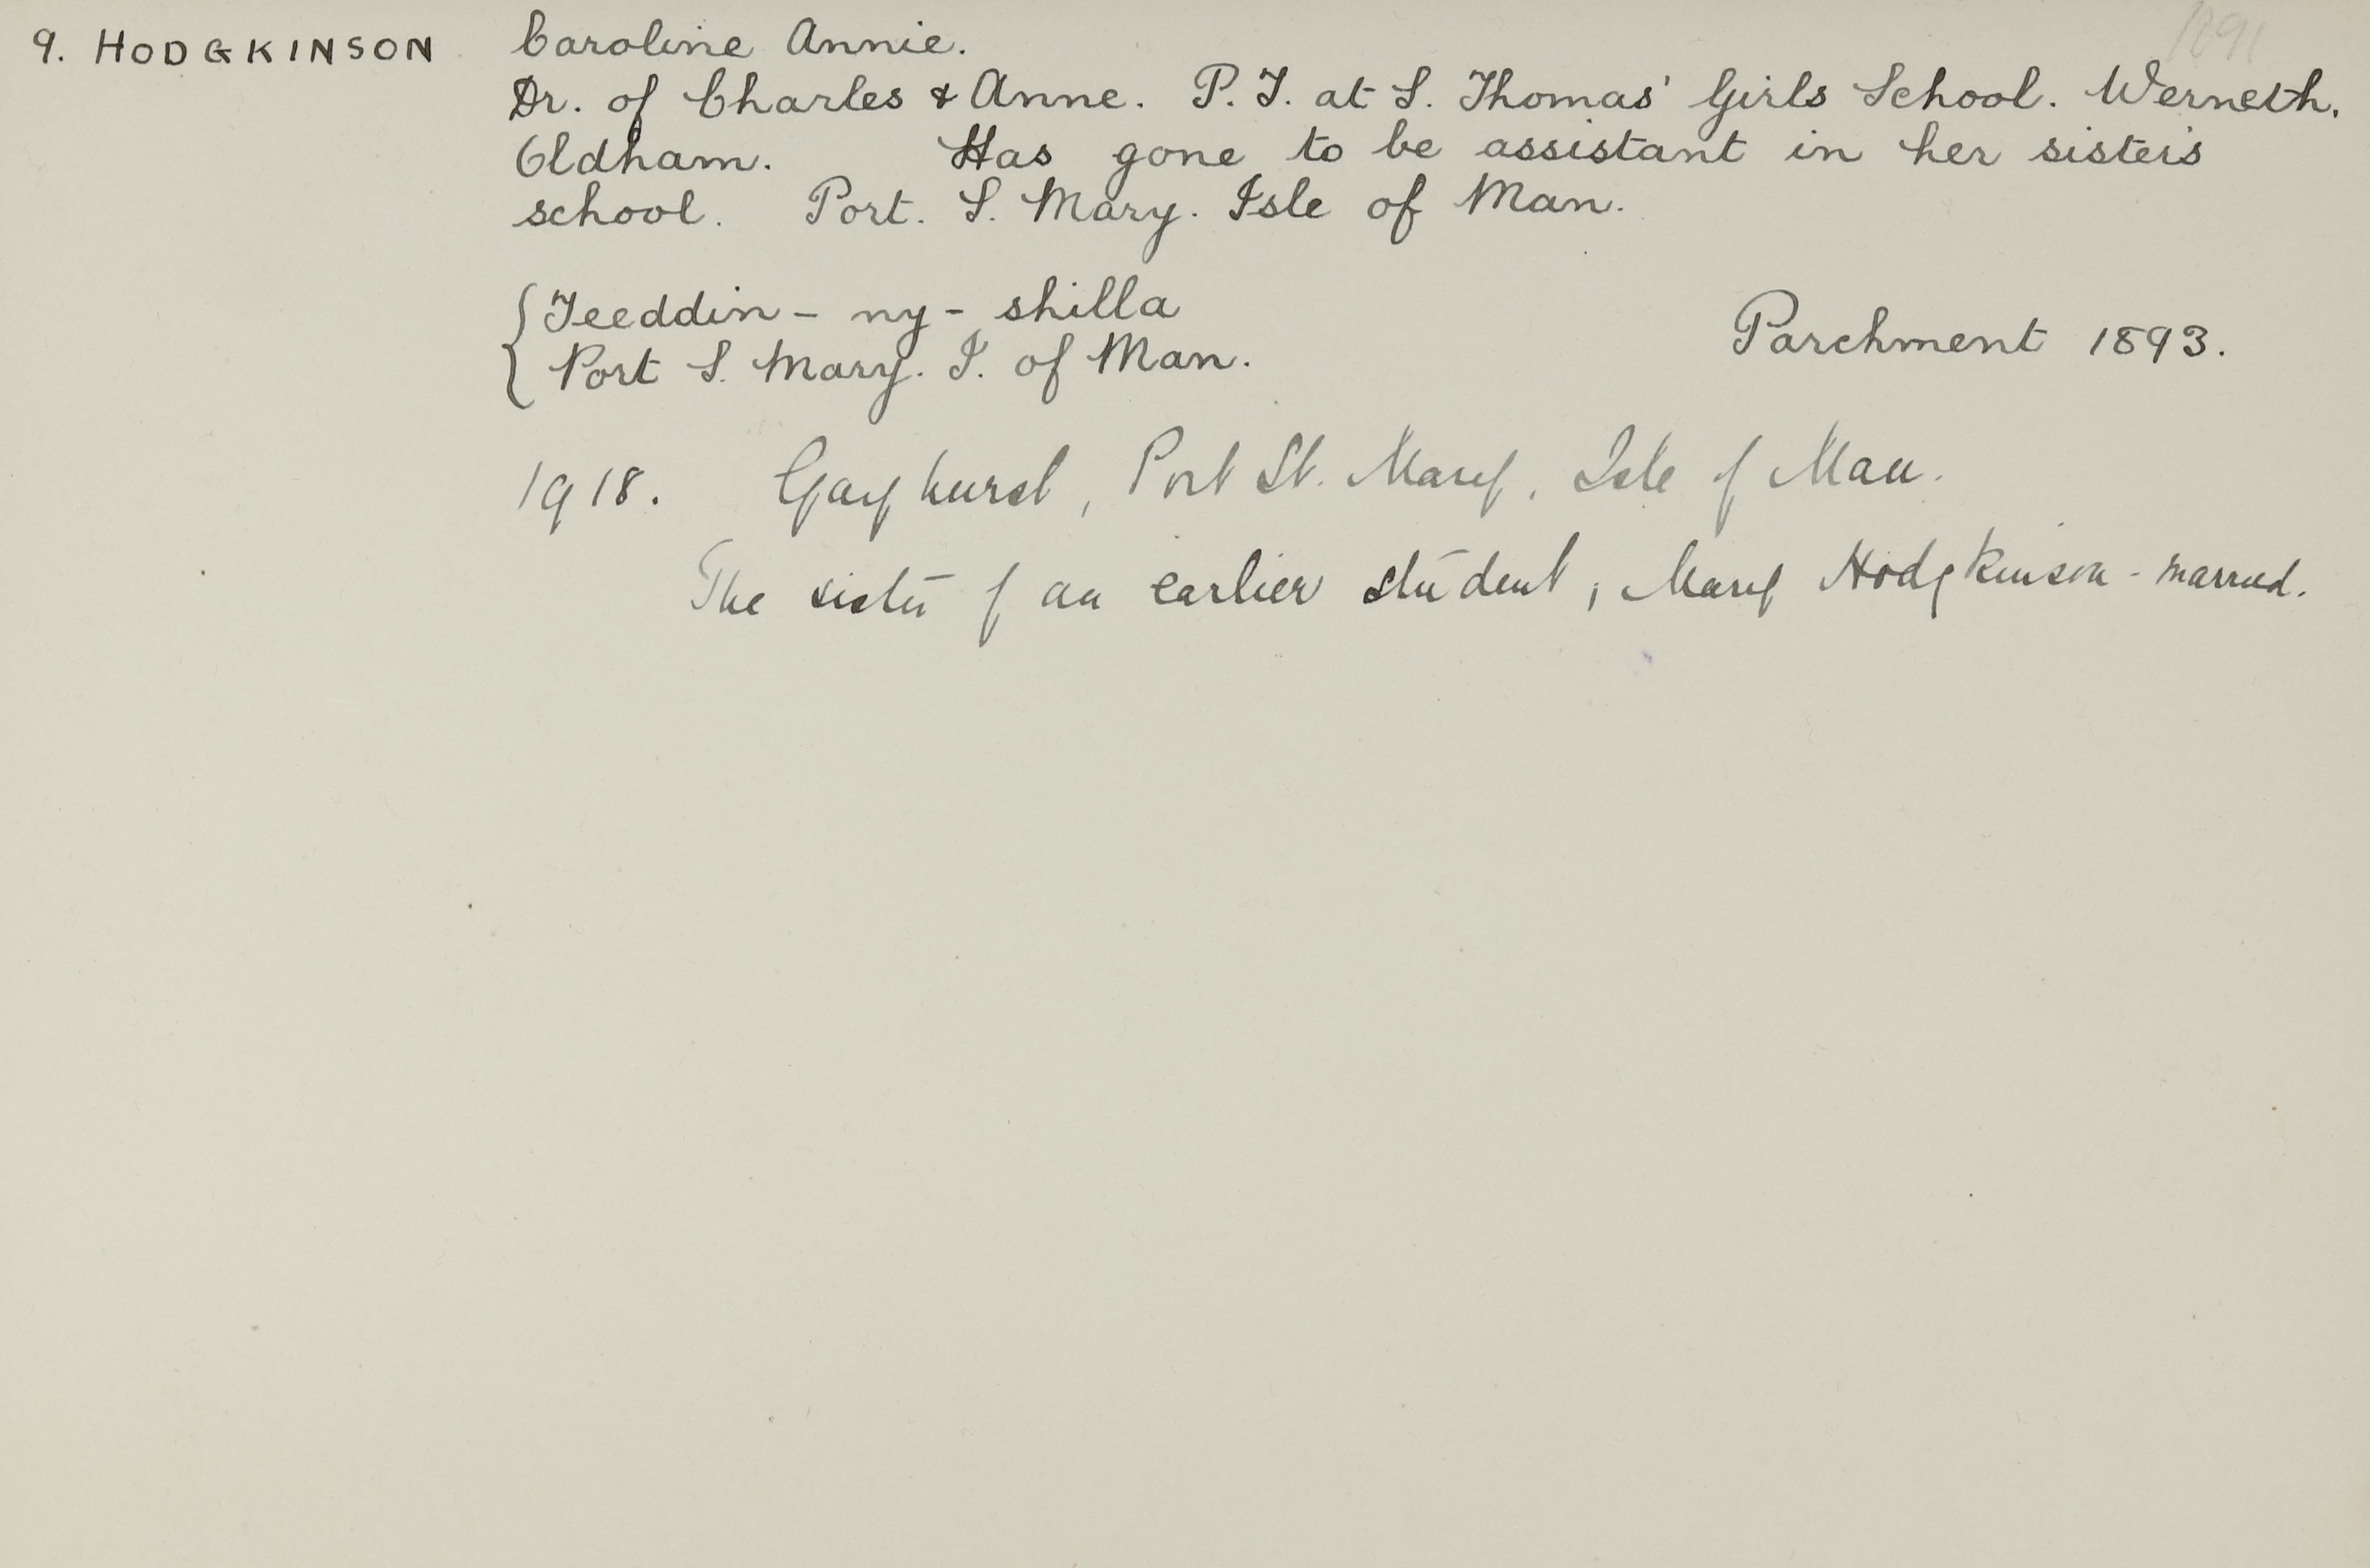 1891
9. HODGKINSON Caroline Annie.
Dr. of Charles & Anne. P.T. at S. Thomas' Girls School. Werneth.
Oldham. Has gone to be assistant in her sister's
school. Port. S. Mary. Isle of Man.
Teeddin - ny - shilla
Port S. Mary. I. of Man.
Parchment 1893.
1918. Gayhurst, Port St. Mary, Isle of Man.
The sister of an earlier student, Mary Hodgkinson - married.